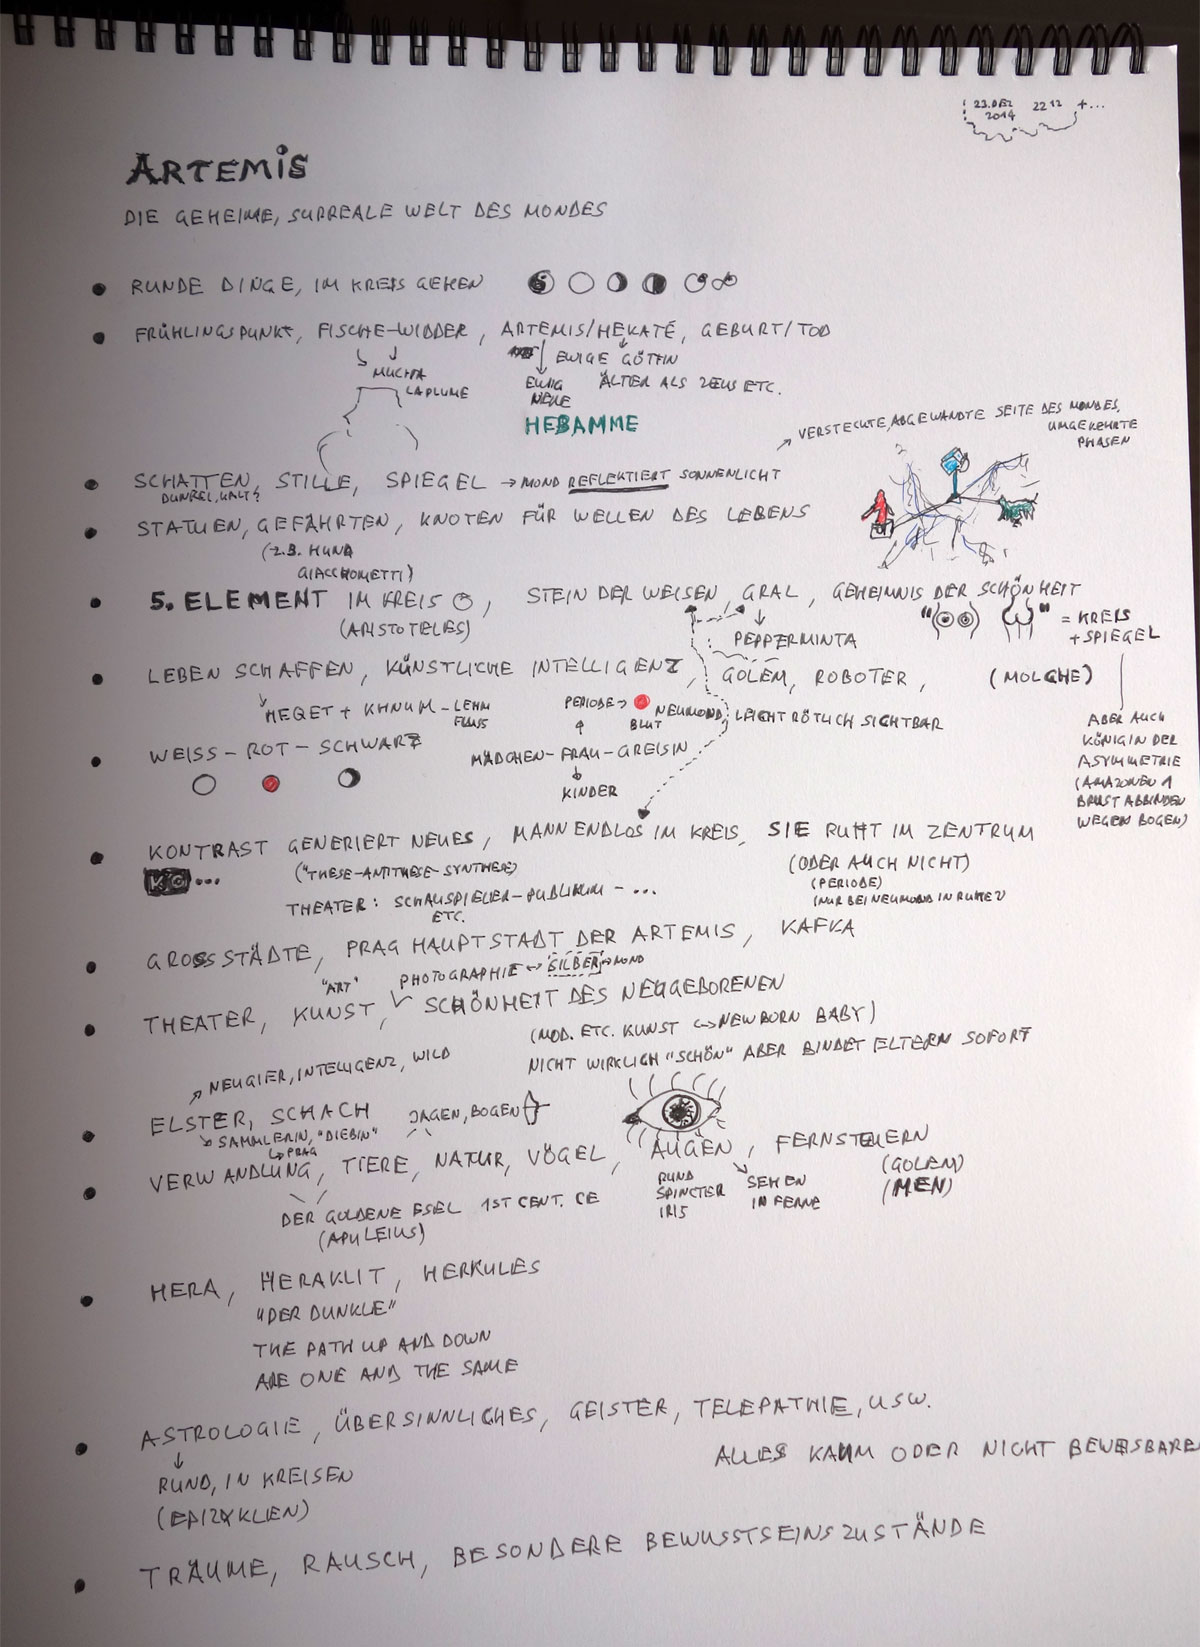 23.DEZ 2212 +...
2014
ARTEMIS
DIE GEHEIME, SURREALE WELT DES MONDES
RUNDE DINGE, IM KREIS GEHEN
FRÜHLINGSPUNKT, FISCHE-WIDDER, ARTEMIS/HEKATE, GEBURT/TOD
MUCHA
LA PLUME
EWIGE GÖTTIN
EWIG ÄLTER ALS ZEUS ETC.
NEUE
HEBAMME
VERSTECKTE, ABGEWANDTE SEITE DES MONDES,
UMGEKEHRTE
PHASEN
SCHATTEN, STILLE, SPIEGEL → MOND REFLEKTIERT SONNENLICHT
DUNKEL, KALT
STATUEN, GEFÄHRTEN, KNOTEN FÜR WELLEN DES LEBENS
(Z.B. HUND
GIACCHOMETTI)
5. ELEMENT IM KREIS, STEIN DER WEISEN, GRAL, GEHEIMNIS DER SCHÖNHEIT
(ARISTOTELES)
PEPPERMINTA
" " = KREIS
+ SPIEGEL
LEBEN SCHAFFEN, KÜNSTLICHE INTELLIGENZ, GOLEM, ROBOTER, (MOLCHE)
HEQET + KHNUM - LEHM
FLUSS
PERIODE → NEUMOND, LEICHT RÖTLICH SICHTBAR
BLUT
ABER AUCH
KÖNIGIN DER
ASYMMETRIE
(AMAZONEN 1
BRUST ABBINDEN
WEGEN BOGEN)
WEISS - ROT - SCHWARZ
MÄDCHEN - FRAU - GREISIN
KINDER
KONTRAST GENERIERT NEUES, MANN ENDLOS IM KREIS, SIE RUHT IM ZENTRUM
KO...
("THESE-ANTITHESE-SYNTHESE)
(ODER AUCH NICHT)
(PERIODE)
(NUR BEI NEUMOND IN RUHE?)
THEATER: SCHAUSPIELER - PUBLIKUM - ...
ETC.
GROSSSTÄDTE, PRAG HAUPTSTADT DER ARTEMIS, KAFKA
"ART" PHOTOGRAPHIE ↔ SILBER → MOND
THEATER, KUNST, SCHÖNHEIT DES NEUGEBORENEN
(MOD. ETC. KUNST ↔ NEWBORN BABY)
NICHT WIRKLICH "SCHÖN" ABER BINDET ELTERN SOFORT
NEUGIER, INTELLIGENZ, WILD
ELSTER, SCHACH
SAMMLERIN, "DIEBIN"
PRAG
JAGEN, BOGEN
VERWANDLUNG, TIERE, NATUR, VÖGEL, AUGEN, FERNSTEUERN
(GOLEM)
(MEN)
DER GOLDENE ESEL 1ST CENT. CE
(APULEIUS)
RUND
SPINCTER
IRIS
SEHEN
IN FERNE
HERA, HERAKLIT, HERKULES
"DER DUNKLE"
THE PATH UP AND DOWN
ARE ONE AND THE SAME
ASTROLOGIE, ÜBERSINNLICHES, GEISTER, TELEPATHIE, USW.
ALLES KAUM ODER NICHT BEWEISBARE
RUND, IN KREISEN
(EPIZYKLEN)
TRÄUME, RAUSCH, BESONDERE BEWUSSTSEINSZUSTÄNDE